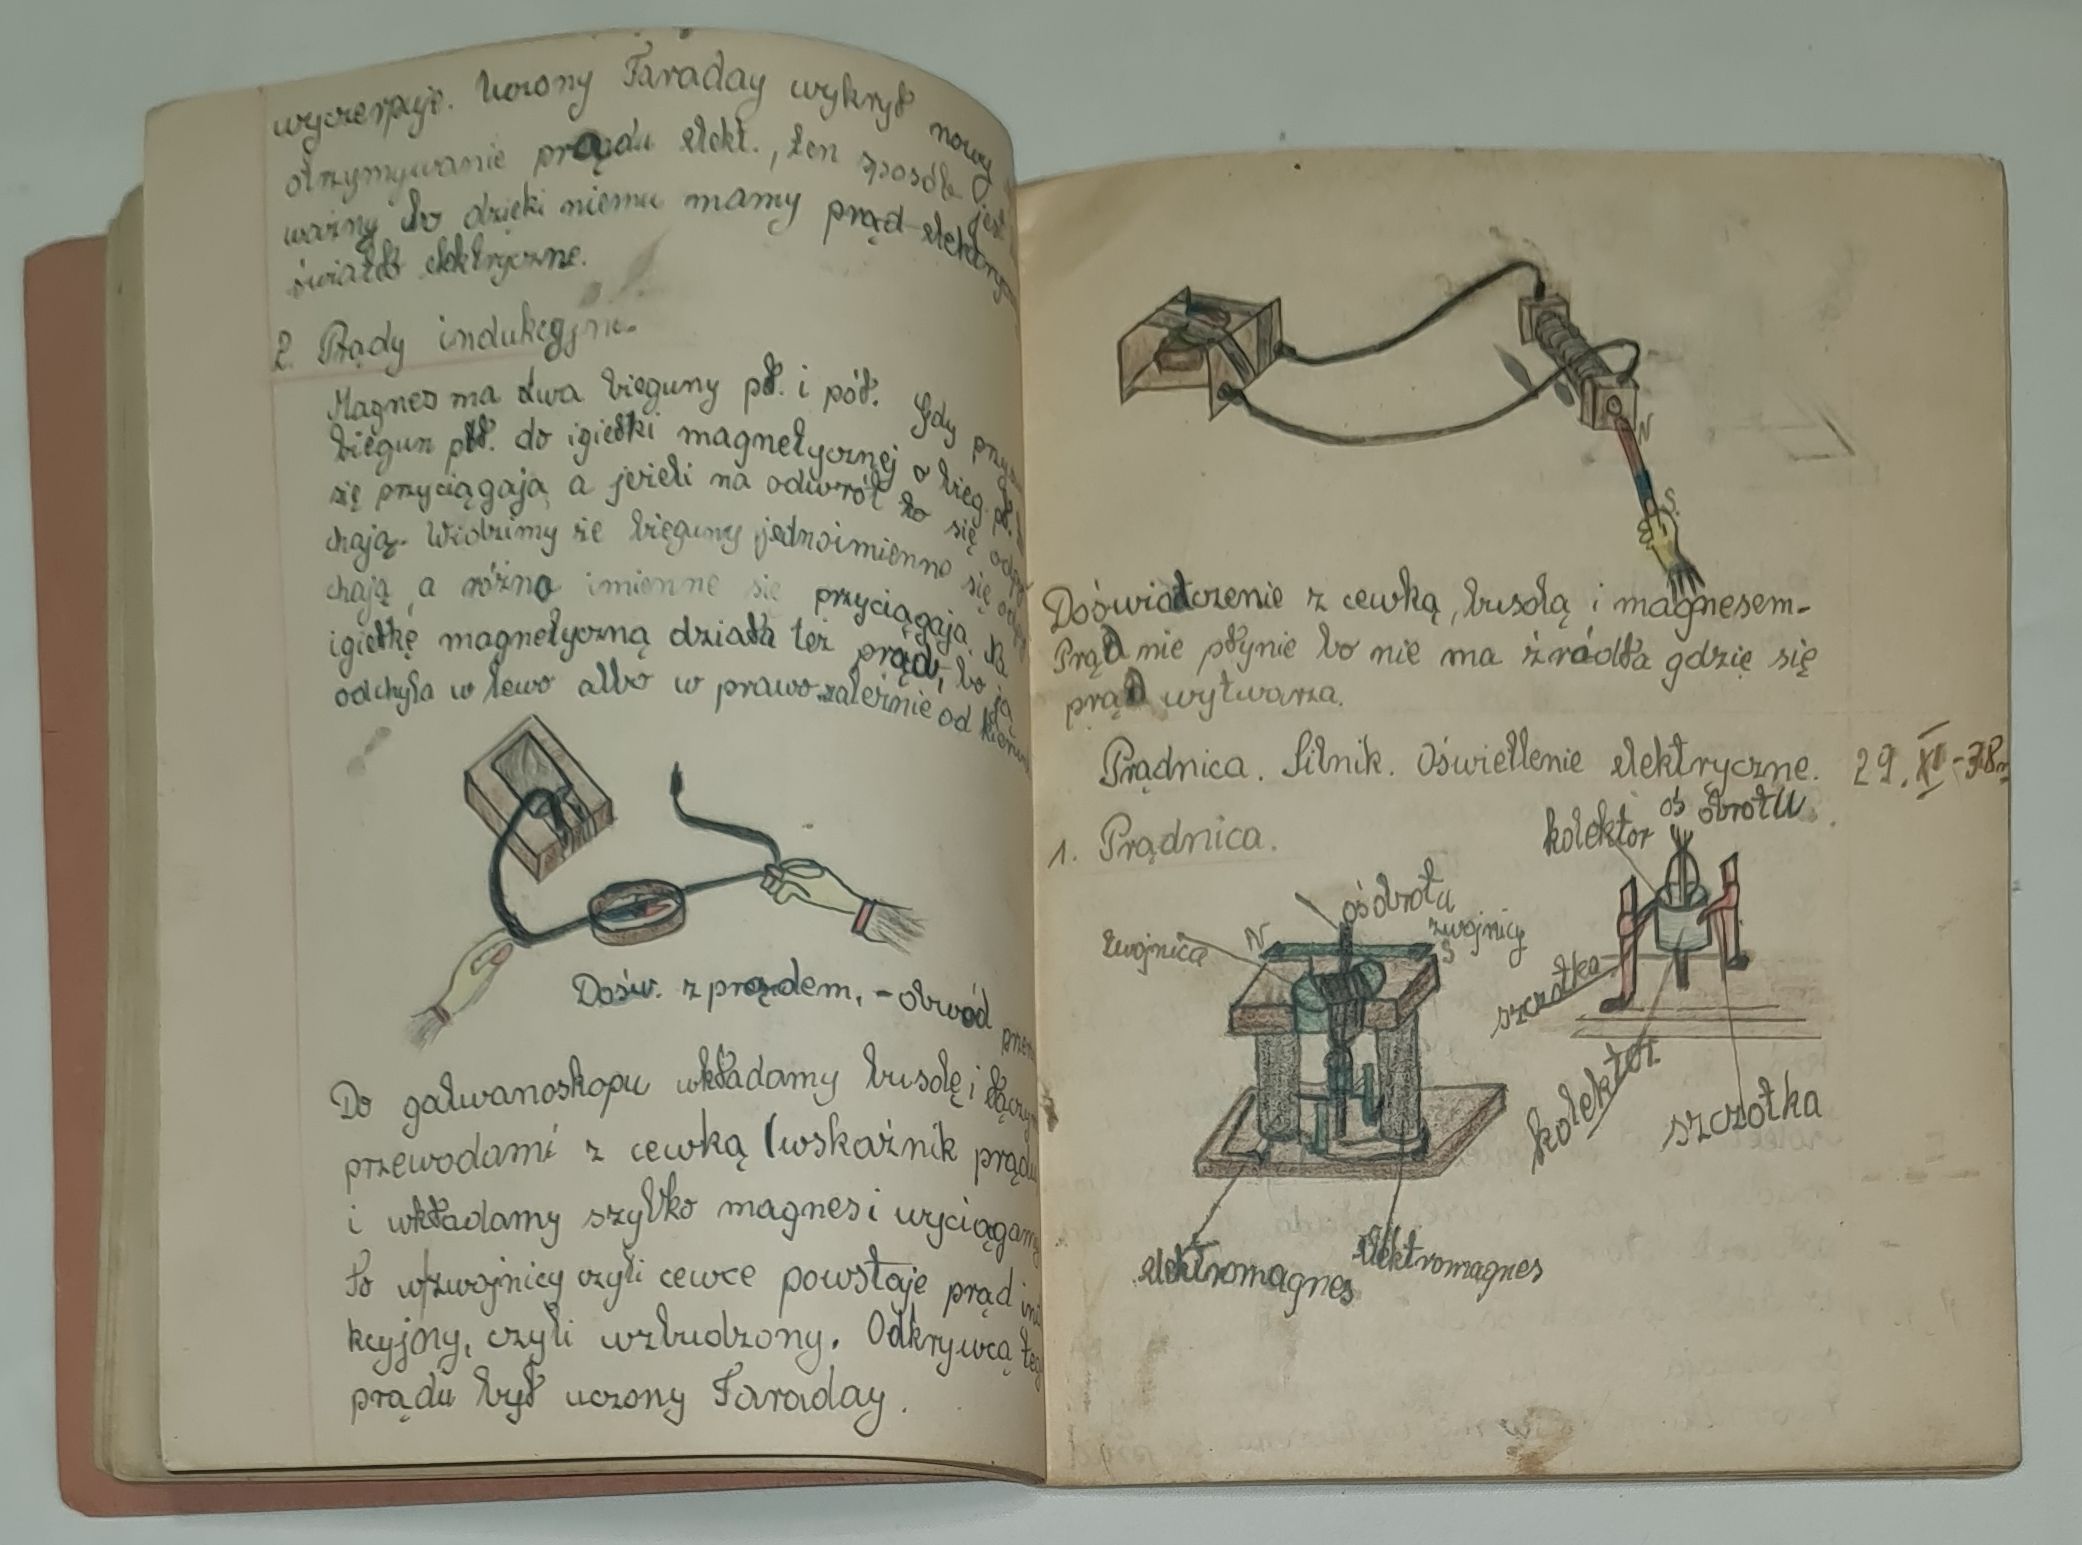 wyczerpuje. Uczony Faraday wykrył nowy
otrzymywanie prądu elekt., ten sposób jest
ważny bo dzięki niemu mamy prąd elektry
światło elektryczne.
2. Prądy indukcyjne.
Magnes ma dwa bieguny pł. i pół. Gdy przy
biegun pł. do igiełki magnetycznej o bieg. pł.
się przyciągają a jeżeli na odwrót to się odpy
chają. Widzimy że bieguny jednoimienne się odpy
chają, a różno imienne się przyciągają. Na
igiełkę magnetyczną działa też prąd, bo ją
odchyla w lewo albo w prawo zależnie od kierun
Dośw. z prądem, - obwód prze
Do galwanoskopu wkładamy busolę i łączym
przewodami z cewką (wskaźnik prądu
i wkładamy szybko magnes i wyciągamy
to w zwojnicy czyli cewce powstaje prąd ind
kcyjny, czyli wzbudzony. Odkrywcą teg
prądu był uczony Faraday.
N
S.
Doświadczenie z cewką, busolą i magnesem-
Prąd nie płynie bo nie ma źródła gdzie się
prąd wytwarza.
Prądnica. Silnik. Oświetlenie elektryczne. 29. XI-38r
1. Prądnica.
kolektor oś obrotu.
oś obrotu
zwojnica N S zwojnicy
szczotka
kolektor szczotka
elektromagnes elektromagnes